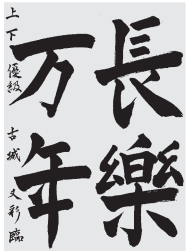 長樂
万年
上下 優級 古城 文彩 臨